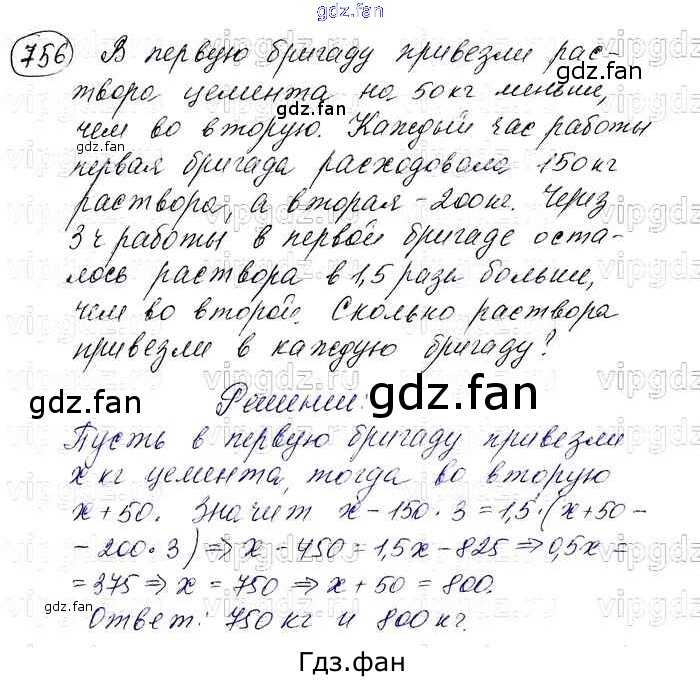 gdz.fan
756 В первую бригаду привезли рас-
gdz.fan
твора цемента на 50 кг меньше,
gdz.fan
чем во вторую. Каждый час работы
первая бригада расходовала 150 кг
gdz.fan
раствора, а вторая - 200 кг. Через
3 ч работы в первой бригаде оста-
лось раствора в 1,5 раза больше,
чем во второй. Сколько раствора
привезли в каждую бригаду?
gdz.fan
gdz.fan
Решение:
Пусть в первую бригаду привезли
x кг цемента, тогда во вторую
x + 50. Значит x - 150 · 3 = 1,5 · (x + 50 -
- 200 · 3) ⇒ x - 450 = 1,5x - 825 ⇒ 0,5x =
= 375 ⇒ x = 750 ⇒ x + 50 = 800.
gdz.fan
Ответ: 750 кг и 800 кг.
gdz.fan
Гдз.фан